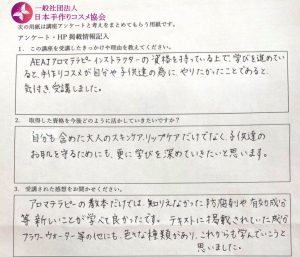 一般社団法人
日本手作りコスメ協会
次の用紙は講座アンケートと考えをまとめてもらう用紙です。
アンケート・HP掲載情報記入
1. この講座を受講したきっかけや理由を教えてください。
AEAJアロマテラピーインストラクターの資格を持っている上で、学びを進めてい
ると、手作りコスメが自分や子供達の為に、やりたかったことであると、
気付き、受講しました。
2. 取得した資格を今後どのように活かしていきたいですか?
自分も含めた大人のスキンケア、リップケアだけでなく、子供達の
お肌を守るためにも、更に学びを深めていきたいと思います。
3. 受講された感想をお聞かせください。
アロマテラピーの教本だけでは、知りえなかった防腐剤や有効成分
等新しいことが学べて良かったです。テキストに掲載されていた成分
フラワーウォーター等の他にも、色々な種類があり、これからも学んでいこうと
思いました。